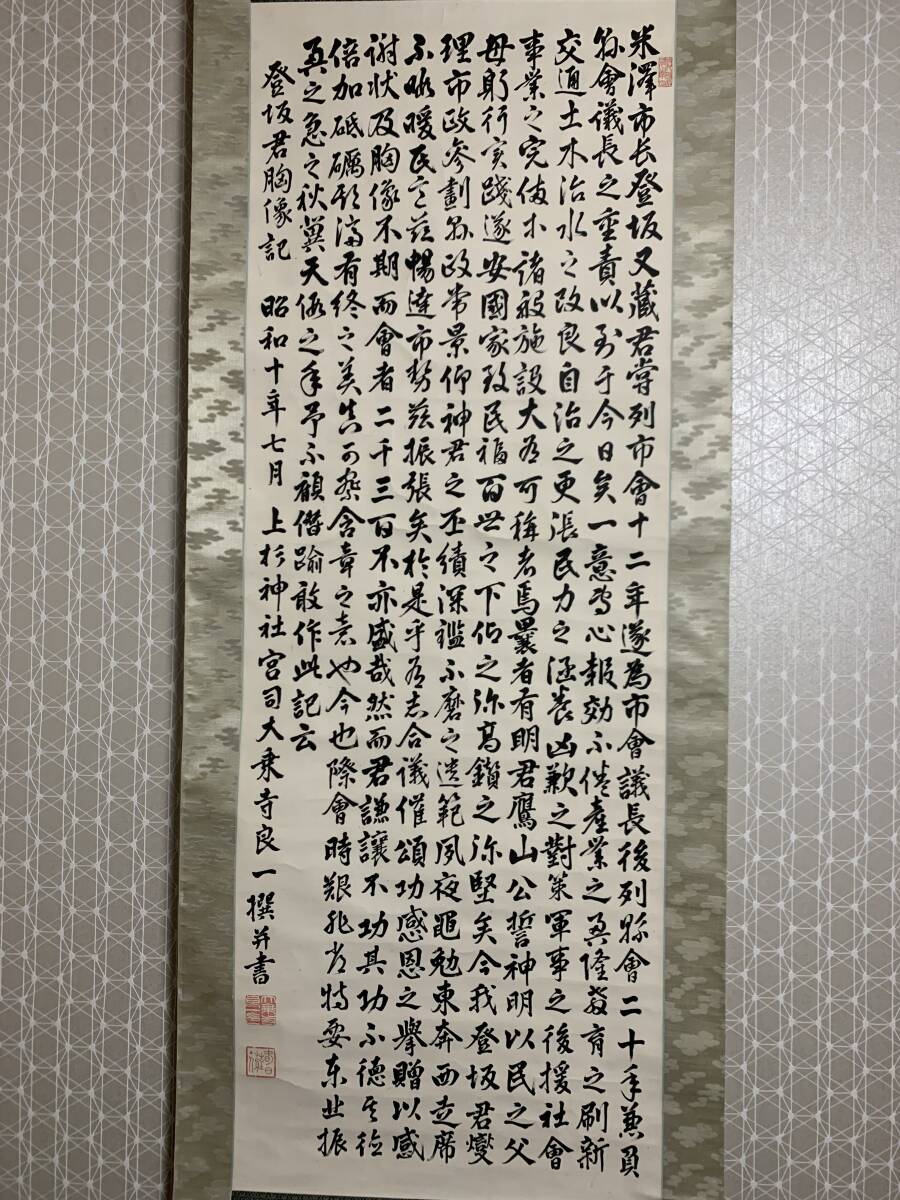 米澤市长登坂又藏君嘗列市會十二年遂為市會議長後列縣會二十年兼負
縣會議長之重責以到于今日矣一意専心報効不倦産業之興隆教育之刷新
交通土木治水之改良自治之更張民力之涵養凶歉之對策軍事之後援社會
事業之完備等諸般施設大有可稱者焉曩者有明君鷹山公誓神明以民之父
母躬行実踐遂安國家致民福百世之下仰之弥高鑽之弥堅矣今我登坂君燮
理市政參劃縣政常景仰神君之丕績深鑑不磨之遺範夙夜黽勉東奔西走席
不暇暖民意茲暢達市勢茲振張矣於是乎有志合議催頌功感恩之擧贈以感
謝状及胸像不期而會者二千三百不亦盛哉然而君謙讓不功其功不徳其徳
倍加砥礪欲済有終之美真可謂含章之意也今也際會時艱非常特要東北振
興之急之秋冀天假之年予不顧僭踰敢作此記云
登坂君胸像記 昭和十年七月 上杉神社宮司大乗寺良一撰并書